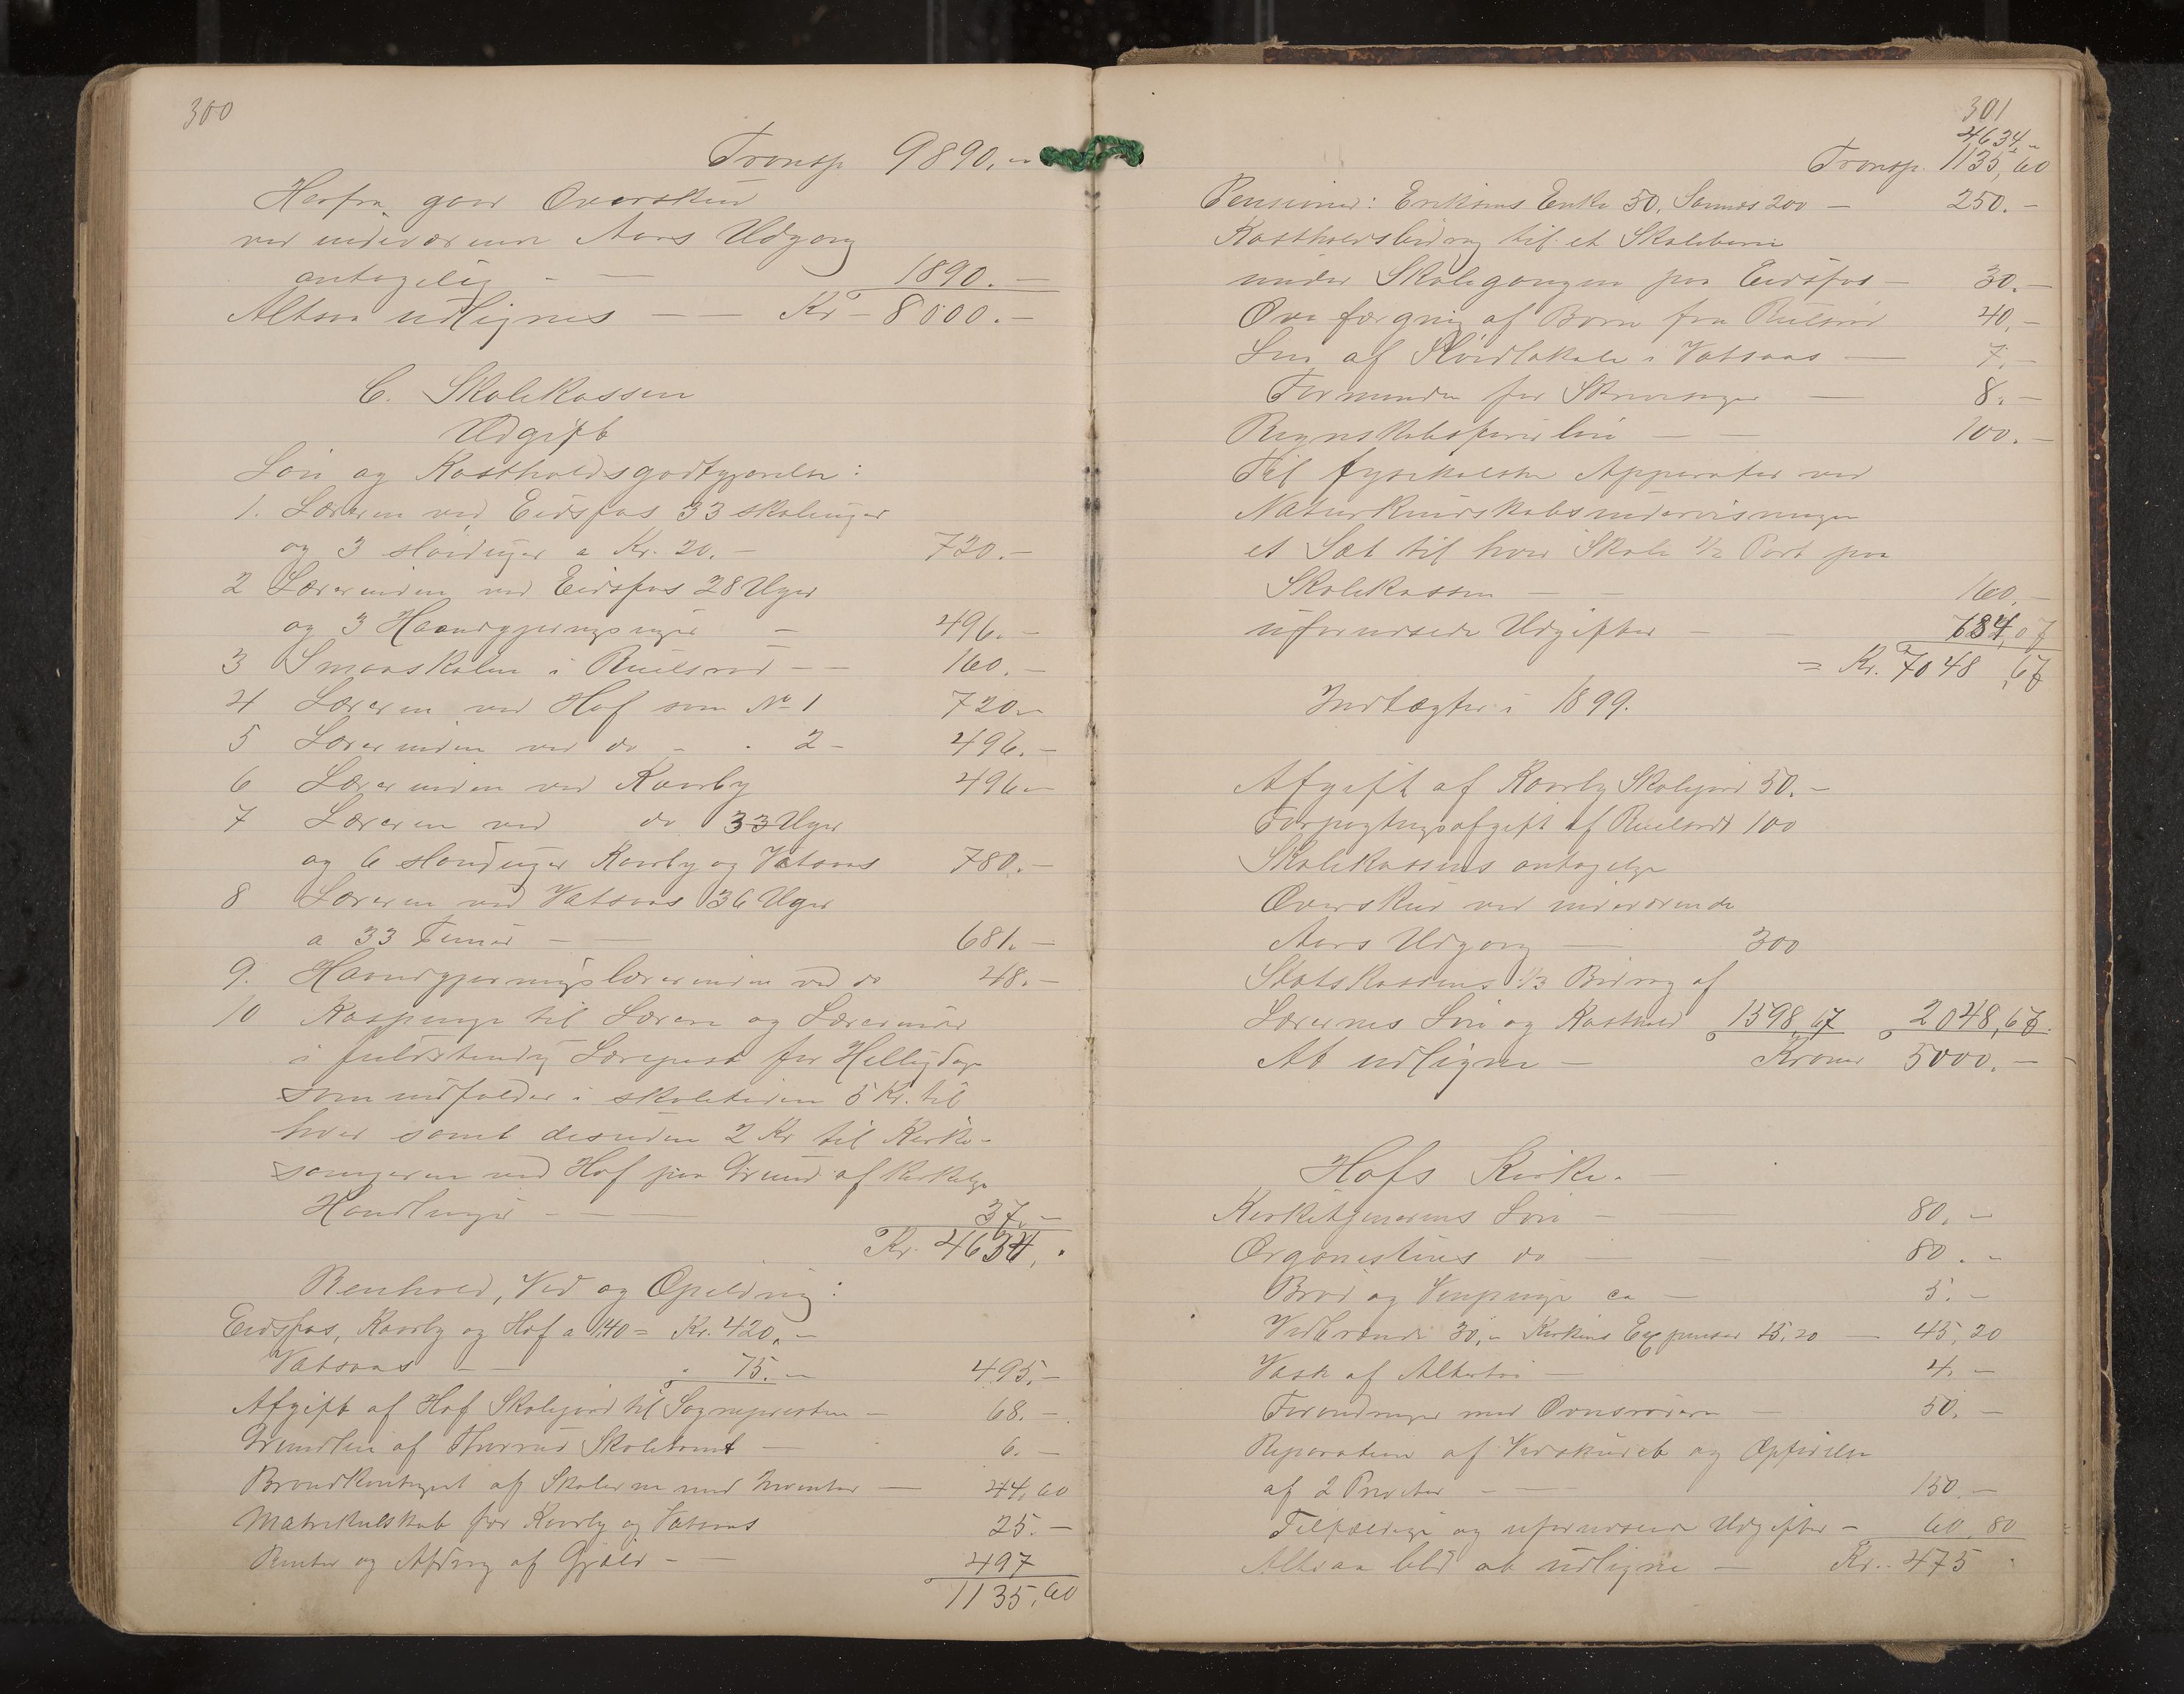 300
Transp. 9890.-
Herfra gaar Overskud
ved indeværende Aars Udgang
antagelig - — 1890.—
Altsaa udlignes — — Kr 8000.—
C. Skolekassen
Udgift
Løn og Kostholdsgodtgjørelse:
1. Læreren ved Eidsfos 33 skoleuger
og 3 sløiduger a Kr. 20.- 720.-
2 Lærerinden ved Eidsfos 28 Uger
og 3 Haandgjerningsuger - 496.-
3 Smaaskolen i Ruelsrød - — 160.-
4 Læreren ved Hof som No 1 720.-
5 Lærerinden ved do - . 2 - 496.-
6 Lærerinden ved Kaarby 496.-
7 Læreren ved do 33 Uger
og 6 sløiduger Kaarby og Vatsaas 780.-
8 Læreren ved Vatsaas 36 Uger
a 33 Timer - — 681.-
9. Haandgjerningslærerinden ved do 48.-
10 Kaspenge til Lærere og Lærerinder
i fuldstændig Lærepost for Helligdage
som indfalder i skoletiden 5 Kr. til
hver samt desuden 2 Kr til Kirke-
sangeren ved Hof paa Grund af kirkelige
Handlinger - — — 37.-
Kr. 4634,.
Renhold, Ved og Opeldning:
Eidsfos, Kaarby og Hof a 140 = Kr. 420.-
Vatsaas - — . 75.- 495.-
Afgift af Hof Skolejord til Sognepresten - 68.-
Grundleie af Thorrud Skoletomt — 6.-
Brandkontingent af Skolerne med Inventar — 44,60
Matrikulskat for Kaarby og Vatsaas 25.-
Renter og Afdrag af Gjæld - — 497
1135,60
301
4634,-
Transp. 1135,60
Pensioner: Eriksens Enke 50, Sannes 200 — 250.-
Kostholdsbidrag til et Skolebarn
under Skolegangen paa Eidsfos — 30.-
Overfærgning af Børn fra Ruelsrød 40,-
Leie af Sløidlokale i Vatsaas — 7.-
Formænder for — 8.-
Regnskabsførerløn — — 100.-
Til fysikalske Apparater ved
Naturkundskabsundervisningen
et Sæt til hver Skole 1/2 Part paa
Skolekassen — - 160.-
uforudsede Udgifter - — 684,07
= Kr. 7048,67
Indtægter i 1899.
Afgift af Kaarby Skolejord 50.-
Forpagtningsafgift af Ruelsrød 100
Skolekassens antagelige
Overskud ved indeværende
Aars Udgang — 300
Statskassens 1/3 Bidrag af
Lærernes Løn og Kosthold 1598,67 2048,67.
At udligne — Kroner 5000.-
Hofs Kirke.-
Kirketjenerens Løn - — 80.-
Organistens do — - 80.-
Brød og Vinpenge ca — 5.-
Vedbrænde 30,- Kirkens Expenser 15,20 — 45,20
Vask af Altertøi — 4.-
Forandringer med Ovnsrørene — 50.-
Reparation af Vedskuret og Opførelse
af 2 Priveter - — 150.-
Tilfældige og uforudsede Udgifter - 60,80
Altsaa bli at udligne - Kr. 475.